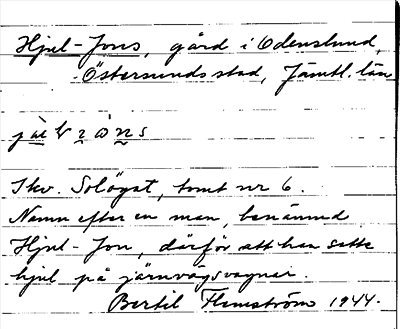 Hjul-Jons, gård i Odenslund,
Östersunds stad, Jämtl. län
I kv. Solögat, tomt nr 6.
Namn efter en man, benämnd
Hjul-Jon, därför att han satte
hjul på järnvägsvagnar.
Bertil Flemström 1944.